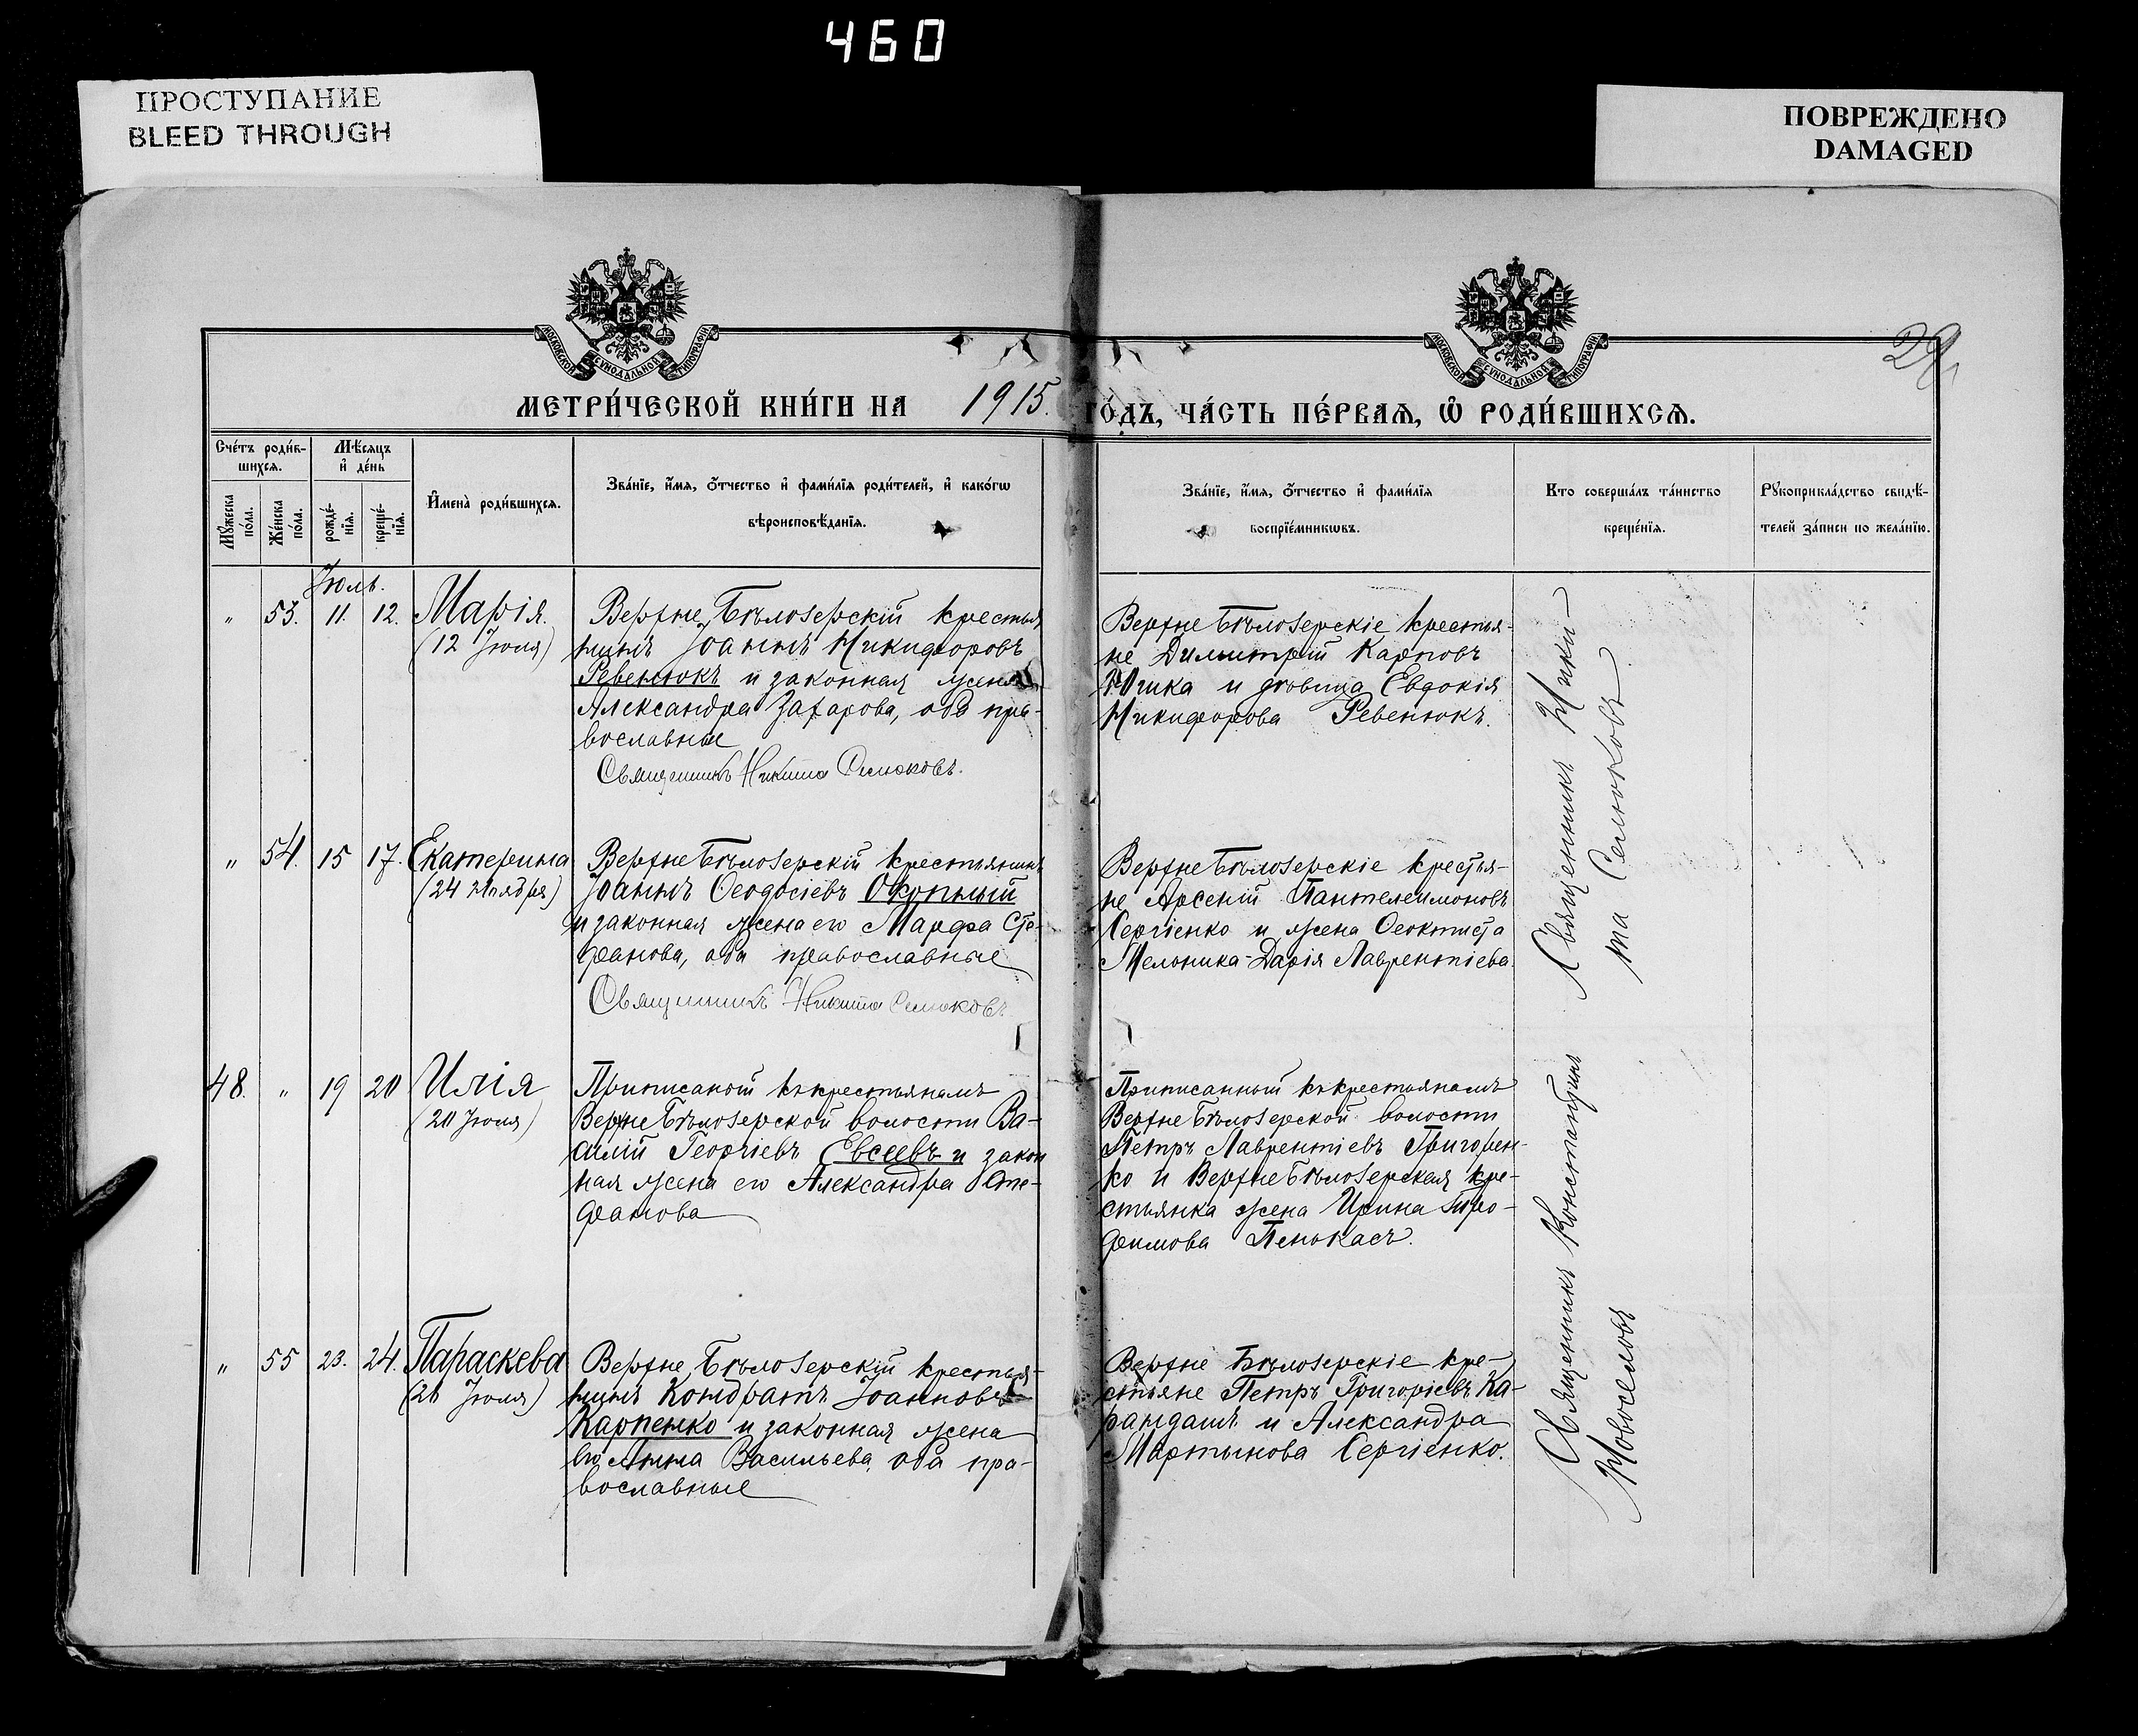 460
ПРОСТУПАНИЕ
BLEED THROUGH
ПОВРЕЖДЕНО
DAMAGED
МОСКОВСКОЙ СѴНОДАЛЬНОЙ ТИПОГРАФІИ
МОСКОВСКОЙ СѴНОДАЛЬНОЙ ТИПОГРАФІИ
29
МЕТРИ́ЧЕСКОЙ КНИ́ГИ НА 1915. ГО́ДЪ, ЧА́СТЬ ПЕ́РВАѦ, Ѿ РОДИ́ВШИХСѦ.
Сче́тъ роди́вшихсѧ.
Мꙋ́жеска по́ла.
Же́нска по́ла.
Мѣ́сѧцъ и҆ де́нь
рожде́нїѧ.
креще́нїѧ.
И҆мена̀ роди́вшихсѧ.
Зва́нїе, и҆́мѧ, ѻ҆́тчество и҆ фами́лїѧ роди́телей, и҆ како́гѡ
вѣроисповѣ́данїѧ.
Зва́нїе, и҆́мѧ, ѻ҆́тчество и҆ фами́лїѧ
воспрїе́мникѡвъ.
Кто соверша́лъ та́инство
креще́нїѧ.
Рꙋкоприкла́дство свидѣ́-
телей за́писи по жела́нїю.
Іюль.
" 53. 11. 12. Марія.
(12 Іюля)
Верхне Бѣлозерскій крестья
нинъ Іоаннъ Никифоровъ
Ревенюкъ и законная жена
Александра Захарова, оба пра-
вославные
Священникъ Никита Селюковъ.
Верхне Бѣлозерскіе крестья-
не Димитрій Карповъ
и вдовица Евдокія
Никифорова Ревенюкъ.
Священникъ Ники-
та Селюковъ
" 54. 15 17. Екатерина
(24 ноября)
Верхне Бѣлозерскій крестьянинъ
Іоаннъ Ѳеодосіевъ Окопный
и законная жена его Марфа Сте-
фанова, оба православные
Священникъ Никита Селюковъ.
Верхне Бѣлозерскіе крестья-
не Арсеній Пантелеимоновъ
Сергіенко и жена Ѳеоктиста
Мельника Дарія Лаврентіева.
48. " 19 20 Илія
(20 Іюля)
Приписаной къ крестьянамъ
Верхне Бѣлозерской волости Ва-
силій Георгіевъ Евсеевъ и закон
ная жена его Александра Сте-
фанова
Приписанный къ крестьянамъ
Верхне Бѣлозерской волости
Петръ Лаврентіевъ Григорен-
ко и Верхне Бѣлозерская кре-
стьянка жена Ирина Тро-
фимова Пенькасъ.
Священникъ Константинъ
Новоселовъ
" 55 23. 24. Параскева
(26 Іюля)
Верхне Бѣлозерскій крестья-
нинъ Кондратъ Іоанновъ
Карпенко и законная жена
его Анна Васильева, оба пра-
вославные
Верхне Бѣлозерскіе кре-
стьяне Петръ Григоріевъ Ка-
рандашъ и Александра
Мартынова Сергіенко.